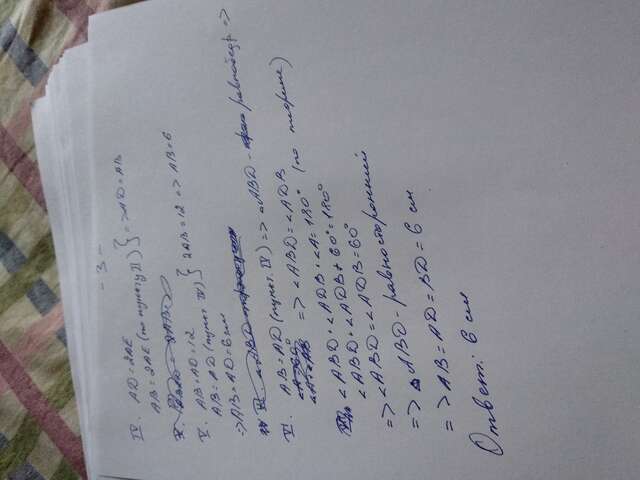 - 3 -
IV. AD = 2AE
AB = 2AE (по пункту II) } => AD = AB
V. AB + AD = 12
AB = AD (пункт IV) } 2AB = 12 => AB = 6
=> AB = AD = 6 см
VI. AB = AD (пункт. IV) => △ABD - равнобедр =>
=> ∠ABD = ∠ADB
∠ABD + ∠ADB + ∠A = 180° (по теореме)
∠ABD + ∠ADB + 60° = 180°
=> ∠ABD = ∠ADB = 60°
=> △ABD - равносторонний
=> AB = AD = BD = 6 см
Ответ: 6 см